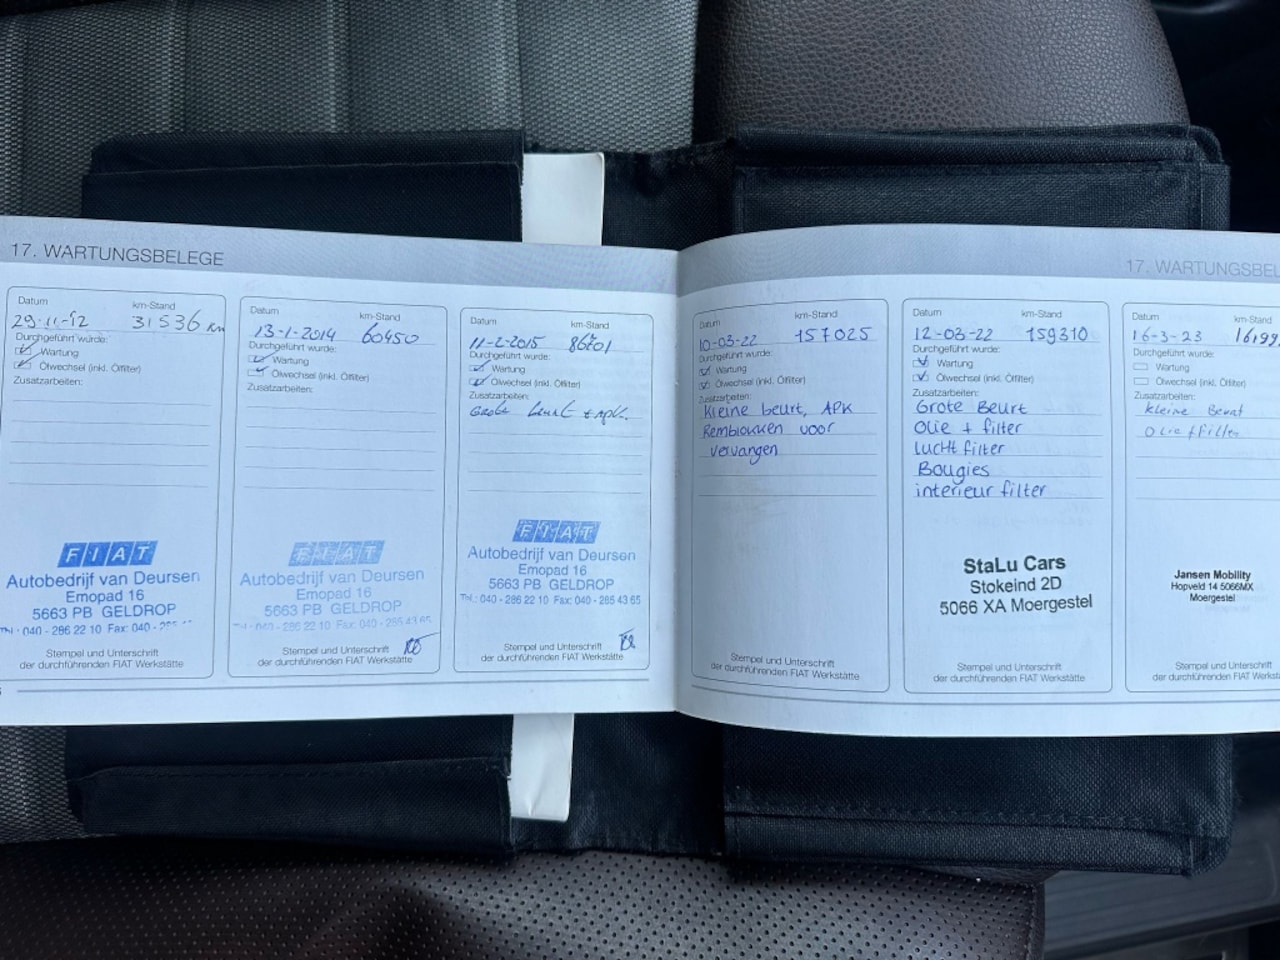 17. WARTUNGSBELEGE
Datum km-Stand
29-11-12 31536 km
Durchgeführt wurde:
Wartung
Ölwechsel (inkl. Ölfilter)
Zusatzarbeiten:
FIAT
Autobedrijf van Deursen
Emopad 16
5663 PB GELDROP
Tel.: 040 - 286 22 10 Fax: 040 -
Stempel und Unterschrift
der durchführenden FIAT Werkstätte
Datum km-Stand
13-1-2014 60450
Durchgeführt wurde:
Wartung
Ölwechsel (inkl. Ölfilter)
Zusatzarbeiten:
FIAT
Autobedrijf van Deursen
Emopad 16
5663 PB GELDROP
Tel.: 040 - 286 22 10 Fax: 040 - 285 43 65
Stempel und Unterschrift
der durchführenden FIAT Werkstätte
Datum km-Stand
11-2-2015 86701
Durchgeführt wurde:
Wartung
Ölwechsel (inkl. Ölfilter)
Zusatzarbeiten:
Grote beurt + apk.
FIAT
Autobedrijf van Deursen
Emopad 16
5663 PB GELDROP
Tel.: 040 - 286 22 10 Fax: 040 - 285 43 65
Stempel und Unterschrift
der durchführenden FIAT Werkstätte
17. WARTUNGSBEL
Datum km-Stand
10-03-22 157025
Durchgeführt wurde:
Wartung
Ölwechsel (inkl. Ölfilter)
Zusatzarbeiten:
Kleine beurt, APK
Remblokken voor
vervangen
Stempel und Unterschrift
der durchführenden FIAT Werkstätte
Datum km-Stand
12-03-22 159310
Durchgeführt wurde:
Wartung
Ölwechsel (inkl. Ölfilter)
Zusatzarbeiten:
Grote Beurt
Olie + filter
lucht filter
Bougies
interieur filter
StaLu Cars
Stokeind 2D
5066 XA Moergestel
Stempel und Unterschrift
der durchführenden FIAT Werkstätte
Datum km-Stand
16-3-23 16199
Durchgeführt wurde:
Wartung
Ölwechsel (inkl. Ölfilter)
Zusatzarbeiten:
kleine Beurt
Olie + filter
Jansen Mobility
Hopveld 14 5066MX
Moergestel
Stempel und Unterschrift
der durchführenden FIAT Werkstätte